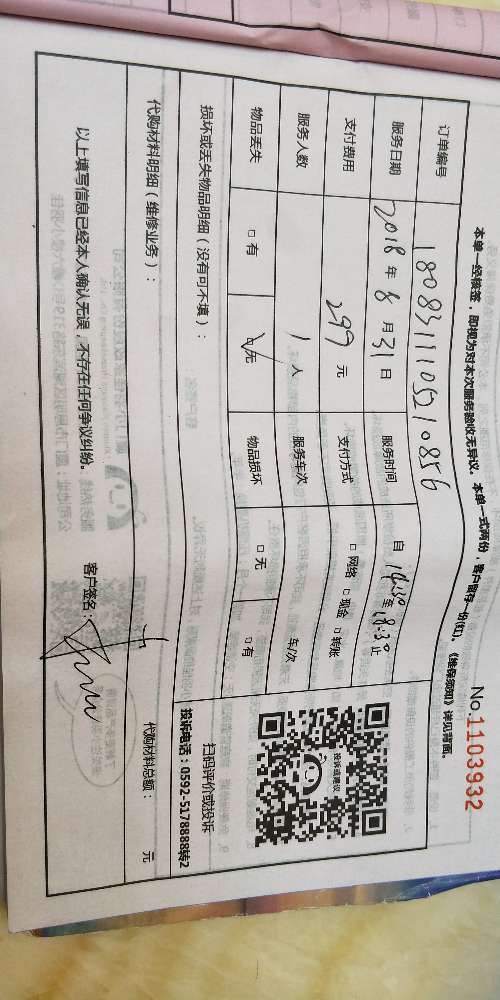 No.1103932
本单一经核签，即视为对本次服务验收无异议。本单一式两份，客户留存一份(红)。《维保须知》详见背面。
订单编号 1808311105210856
服务日期 2018年8月31日 服务时间 自14:30至18:30止
支付费用 299元 支付方式 □网络 □现金 □转账
服务人数 1人 服务车次 车/次
物品丢失 □有 ☑无 物品损坏 □无 □有
损坏或丢失物品明细（没有可不填）：
扫码评价或投诉
投诉电话：0592-5178888转2
代购材料明细（维修业务）：
代购材料总额： 元
以上填写信息已经本人确认无误，不存在任何争议纠纷。
客户签名：
投诉或建议